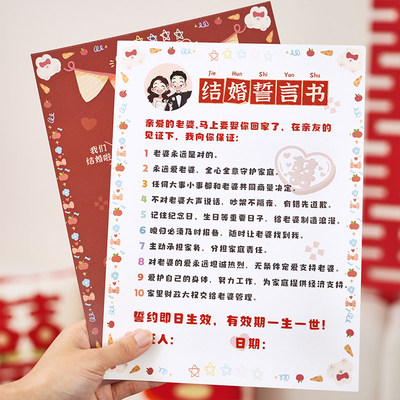 Jie Hun Shi Yan Shu
结婚誓言书
亲爱的老婆,马上要娶你回家了,在亲友的
见证下,我向你保证:
1 老婆永远是对的。
2 永远爱老婆,全心全意守护家庭。
3 任何大事小事都和老婆共同商量决定。
4 不对老婆大声说话,吵架不隔夜,有错先道歉。
5 记住纪念日、生日等重要日子,给老婆制造浪漫。
6 晚归必须及时报备,随时让老婆找到我。
7 主动承担家务,分担家庭责任。
8 对老婆的爱永远坦诚热烈,无条件宠爱支持老婆。
9 爱护自己的身体,努力工作,为家庭提供经济支持。
10 家里财政大权交给老婆管理。
誓约即日生效,有效期一生一世!
人: 日期:
我们
结婚啦
囍